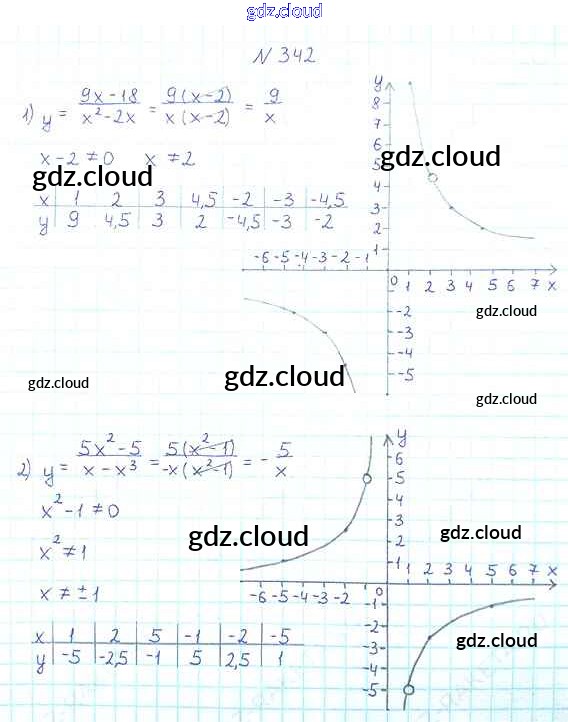 gdz.cloud
N 342
1) y = (9x-18)/(x²-2x) = 9(x-2)/(x(x-2)) = 9/x
x-2≠0 x≠2
gdz.cloud
gdz.cloud
x 1 2 3 4,5 -2 -3 -4,5
y 9 4,5 3 2 -4,5 -3 -2
y
8
7
6
4
3
2
1
-6 -5 -4 -3 -2 -1 0 1 2 3 4 5 6 7 x
-2
-3
-4
-5
gdz.cloud
gdz.cloud
gdz.cloud
2) y = (5x²-5)/(x-x³) = 5(x²-1)/(-x(x²-1)) = -5/x
x²-1≠0
x²≠1
x≠±1
gdz.cloud
gdz.cloud
gdz.cloud
x 1 2 5 -1 -2 -5
y -5 -2,5 -1 5 2,5 1
y
6
5
3
2
1
1 2 3 4 5 6 7 x
-6 -5 -4 -3 -2 0
-1
-2
-3
-4
-5